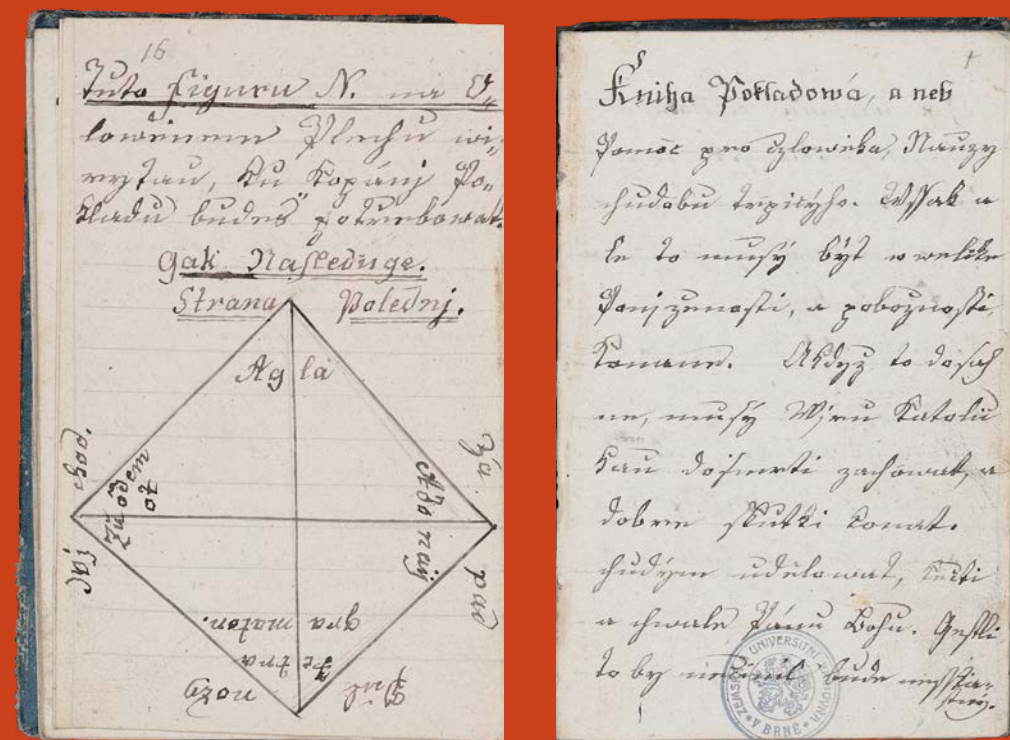 16
Tuto Figuru N. na O„
lowěnem Plechu wi„
rytau, ku kopánj Po„
kladu budeš potrebowat.
Gak Nasleduge.
Strana Polednj.
Ag la
chod.
Ado naij
Za
pad
gra maton.
Te tra
Puł nozy
†
Kniha Pokladowá, a neb
Pomoc pro czlowěka, Nauzy
chudobu trpicýho. Wssak a
le to musý být w weliké
Ponjzenosti, a pobožnosti
konane. Akdyz to dosáh
ne, musý Wjru Katolic
kau dosmrti zachowat, a
dobre skutki konat.
chudým udělowat, kecti
a chwale Pánu Bohu. Gestli
to by bude nesstia„
stný.
ZEMSKÁ UNIVERSITNÍ KNIHOVNA
V BRNĚ